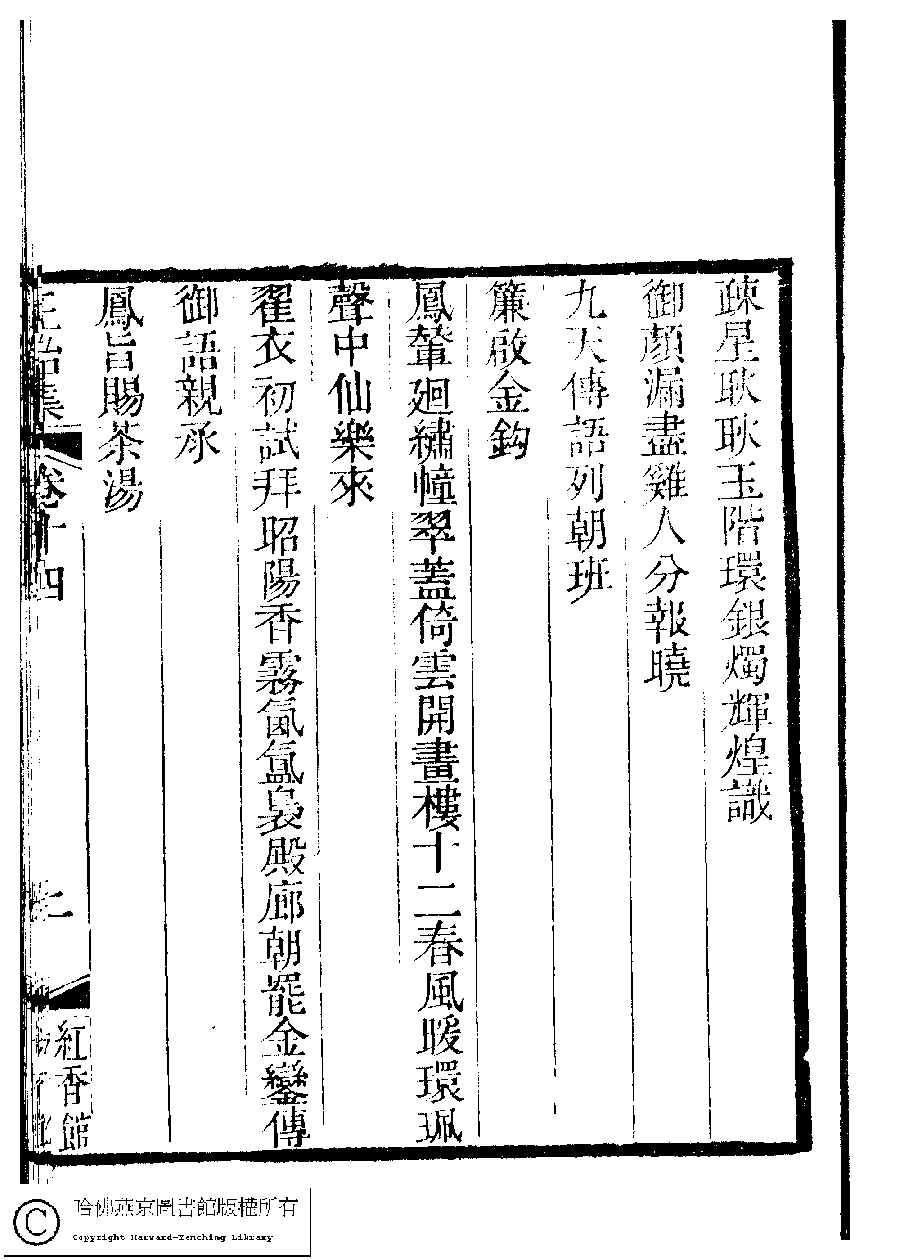 疎星耿耿玉階環銀燭輝煌識
御顏漏盡雞人分報曉
九天傳語列朝班
簾啟金鈎
鳳輦廻繡幢翠蓋倚雲開畫樓十二春風暖環珮
聲中仙樂來
翟衣初試拜昭陽香霧氤氳裊殿廊朝罷金鑾傳
御語親承
鳳旨賜茶湯
集 卷十四
紅香館
哈佛燕京圖書館版權所有
Copyright Harvard-Yenching Library